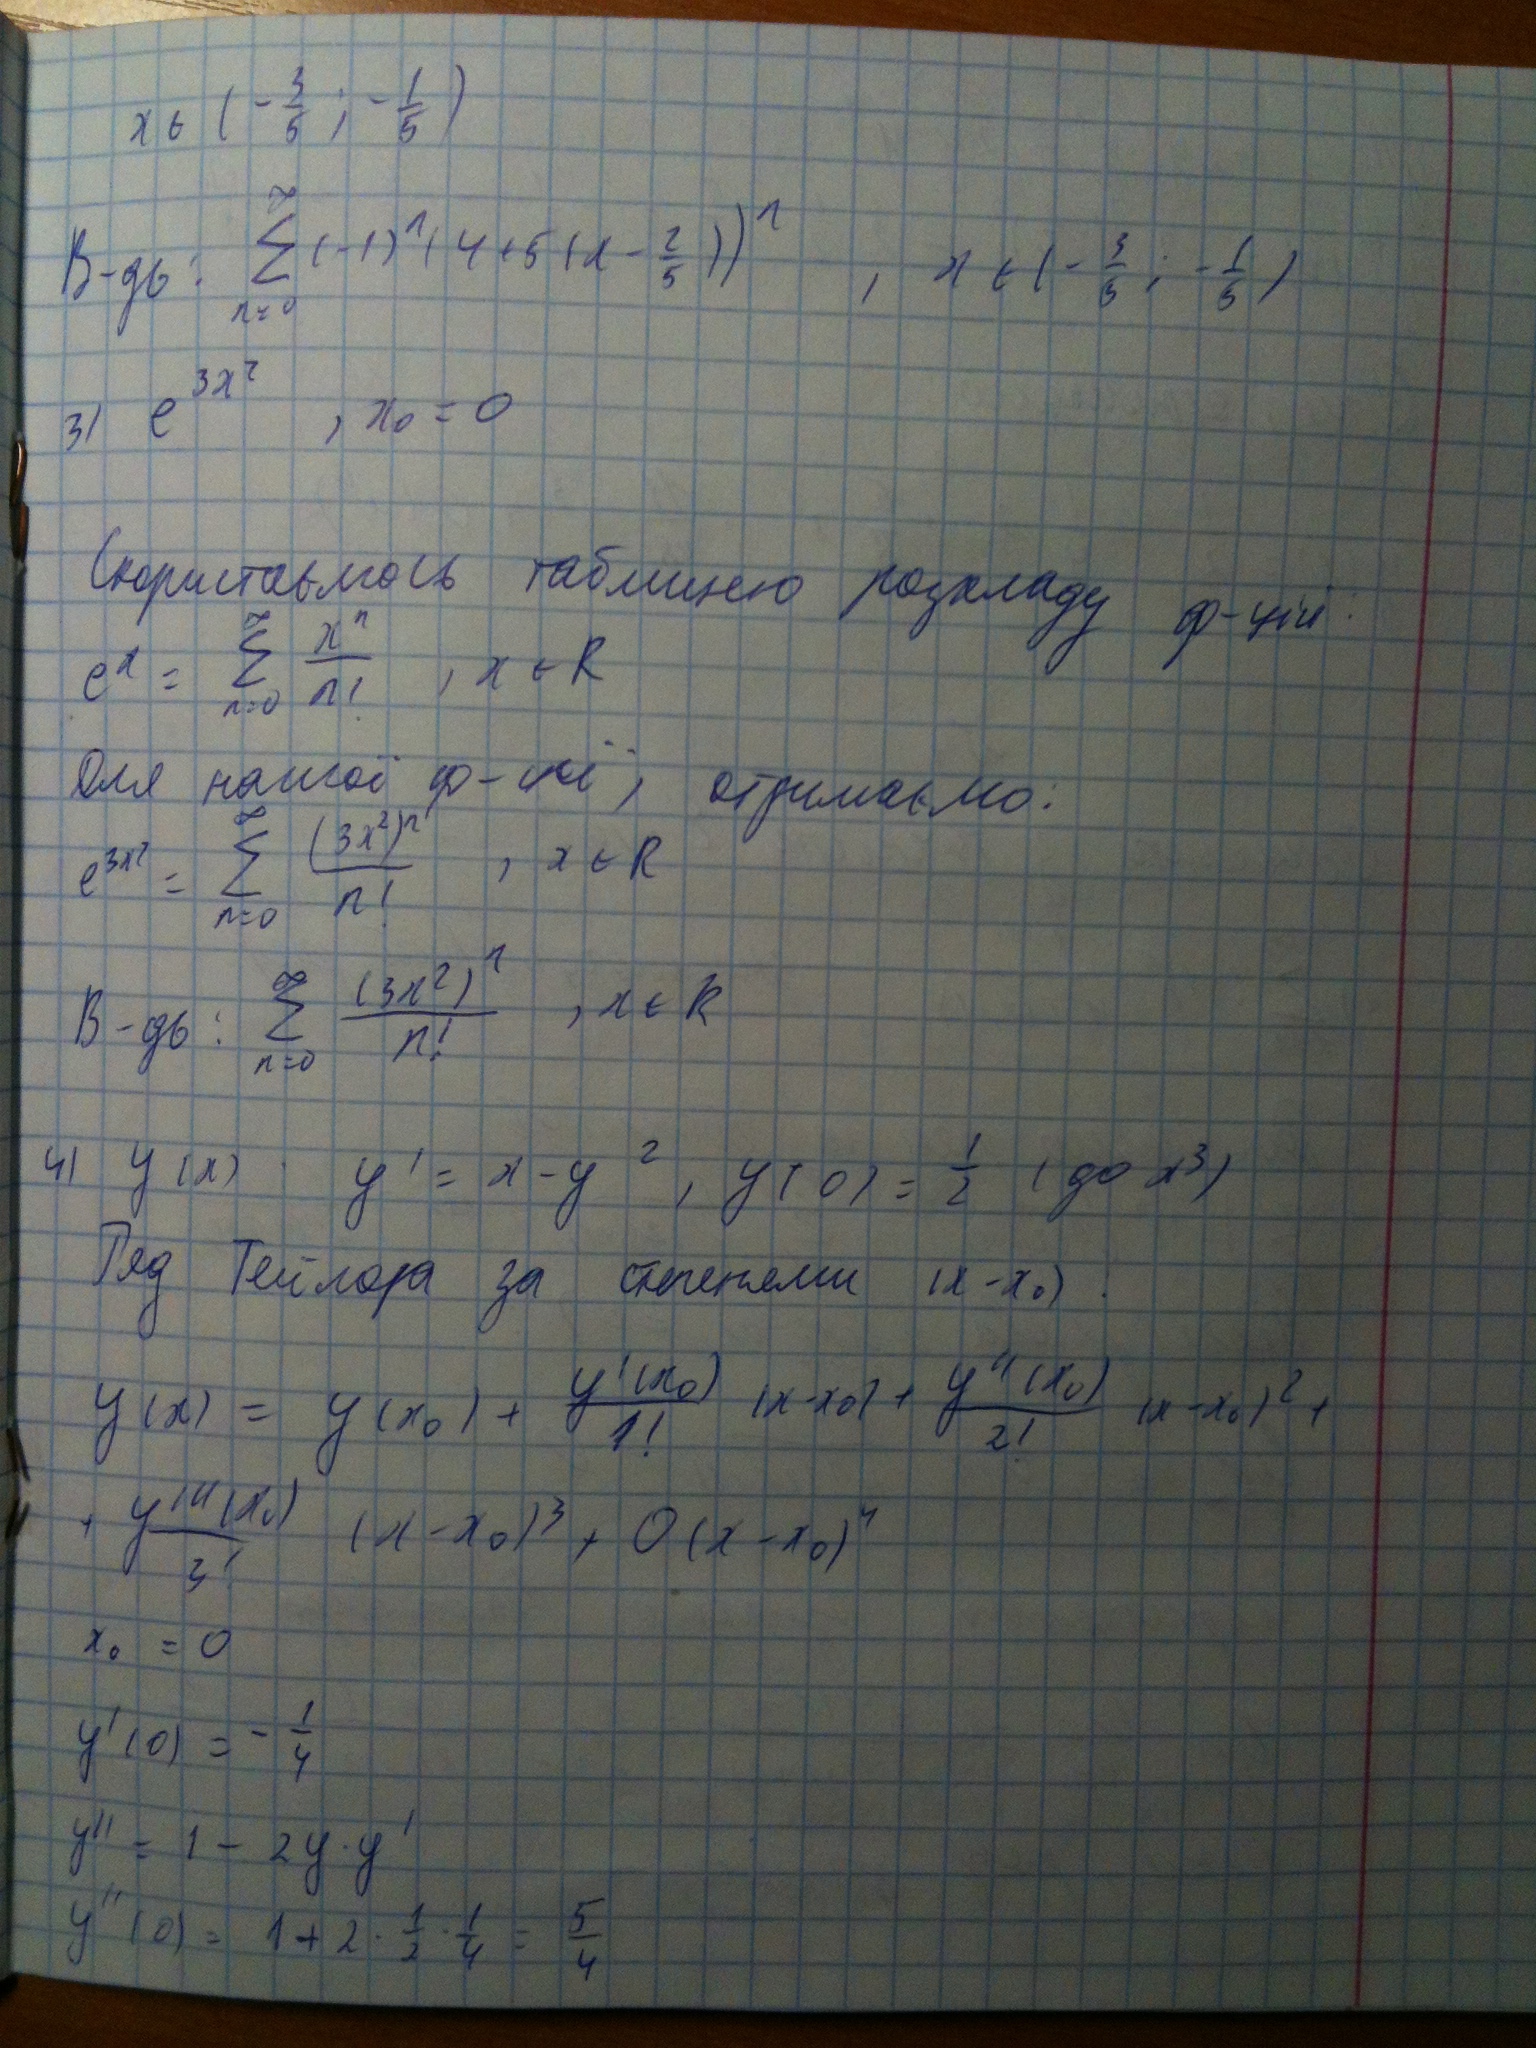 x ∈ (-3/5 ; -1/5)
В-дь: ∑_{n=0}^{∞} (-1)^n (4+5(x-2/5))^n , x ∈ (-3/5 ; -1/5)
3) e^{3x^2} , x_0 = 0
Скористаємось таблицею розкладу ф-цій:
e^x = ∑_{n=0}^{∞} x^n/n! , x ∈ R
Для нашої ф-ції, отримаємо:
e^{3x^2} = ∑_{n=0}^{∞} (3x^2)^n/n! , x ∈ R
В-дь: ∑_{n=0}^{∞} (3x^2)^n/n! , x ∈ R
4) y(x) : y' = x - y^2 , y(0) = 1/2 (до x^3)
Ряд Тейлора за степенями (x-x_0) :
y(x) = y(x_0) + y'(x_0)/1! (x-x_0) + y''(x_0)/2! (x-x_0)^2 +
+ y'''(x_0)/3! (x-x_0)^3 + O(x-x_0)^4
x_0 = 0
y'(0) = -1/4
y'' = 1 - 2y·y'
y''(0) = 1+2·1/2·1/4 = 5/4